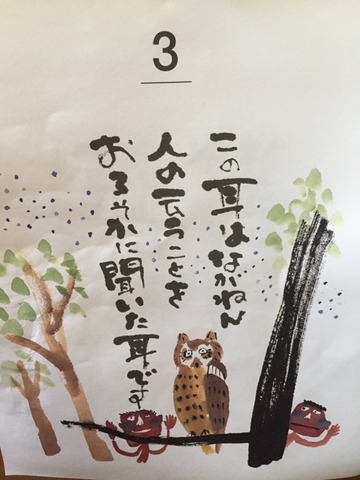 3
この耳はなかねん
人の云うことを
おろそかに聞いた耳です